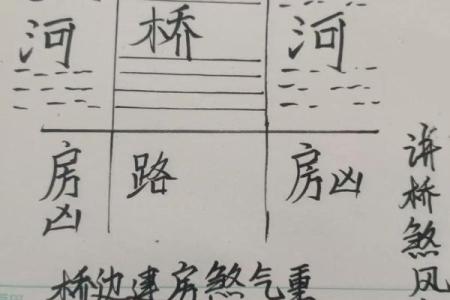 河 桥 河
房凶 路 房凶
讲桥煞风
桥边建房煞气重